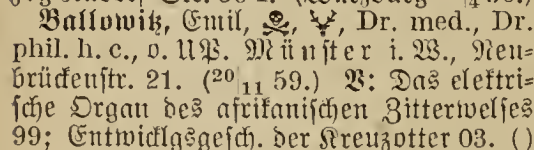 Ballowitz, Emil, ☠, Dr. med., Dr.
phil. h. c., o. UP. Münster i. W., Neu-
brückenstr. 21. (20|11 59.) V: Das elektri-
sche Organ des afrikanischen Zitterwelses
99; Entwicklgsgesch. der Kreuzotter 03. ()